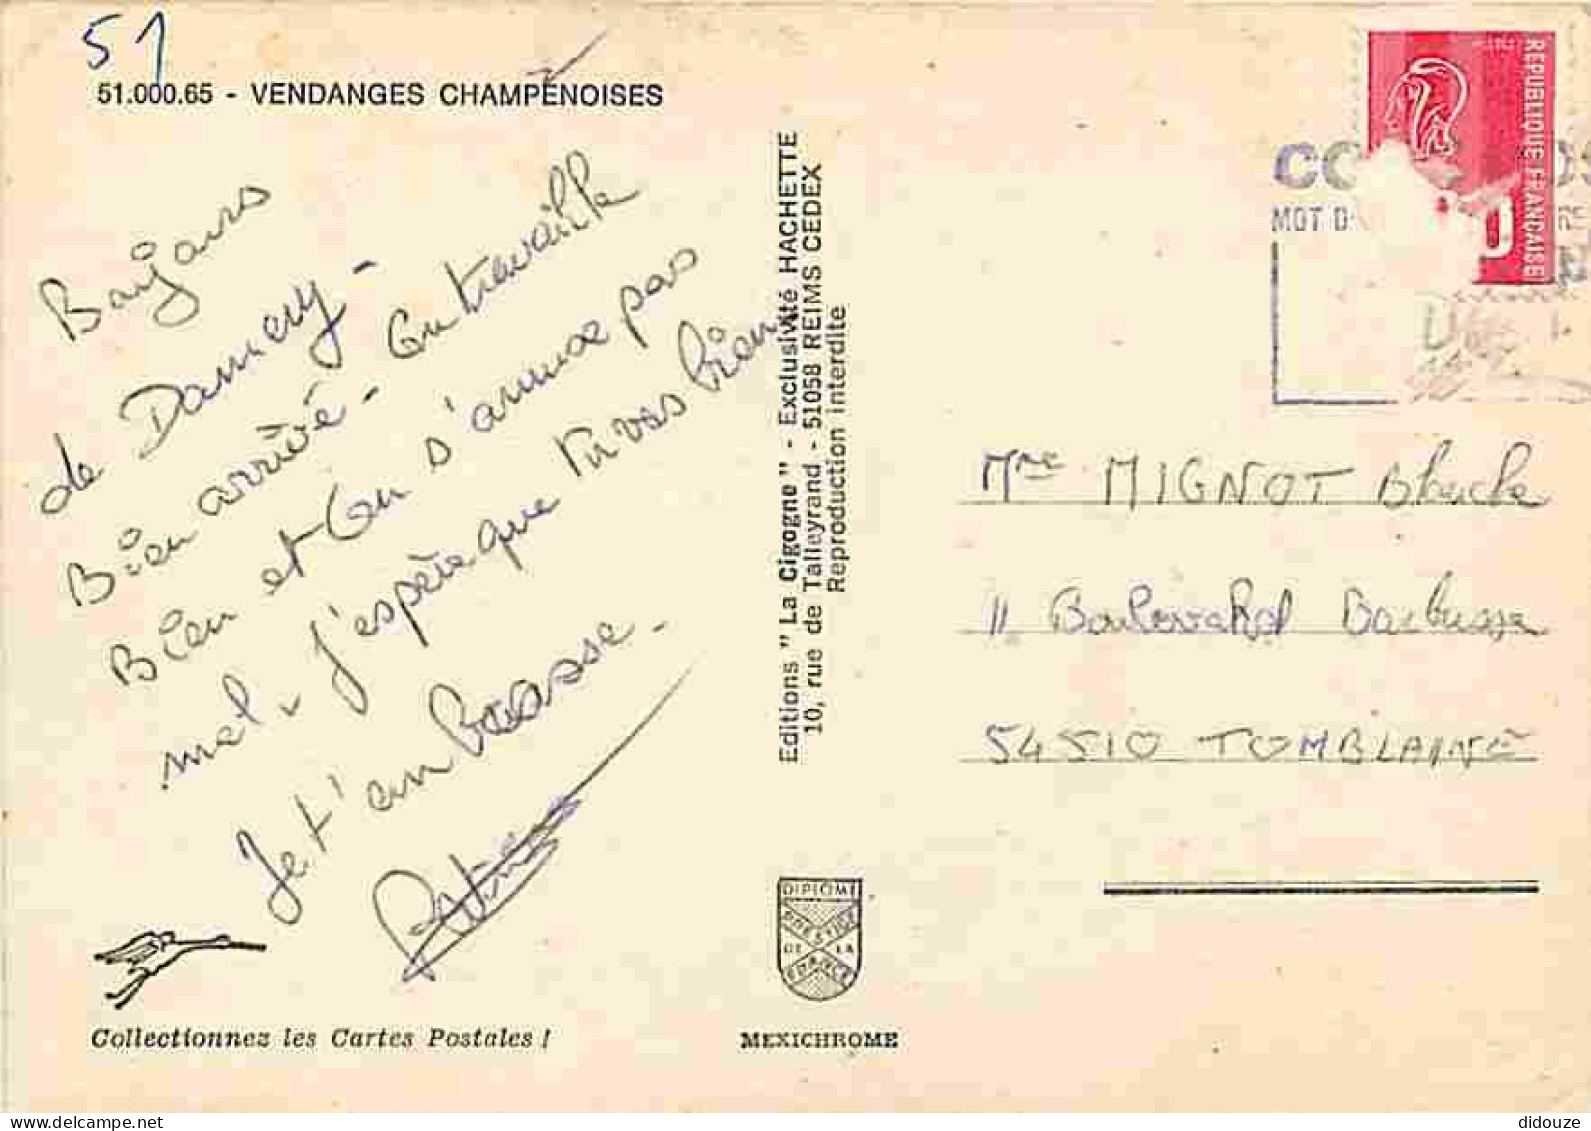 51
51.000.65 - VENDANGES CHAMPENOISES
Bonjours
de Damery -
Bien arrivé - on travaille
Bien et on s'amuse pas
mal. J'espère que tu vas bien.
Je t'embrasse.
Editions " La Cigogne " - Exclusivité HACHETTE
10, rue de Talleyrand - 51058 REIMS CEDEX
Reproduction interdite
REPUBLIQUE FRANCAISE
MOT D
Mme MIGNOT Blanche
11 Boulevard Barbusse
54510 TOMBLAINE
DIPLOME
PRESTIGE
DE LA
FRANCE
Collectionnez les Cartes Postales !
MEXICHROME
didouze